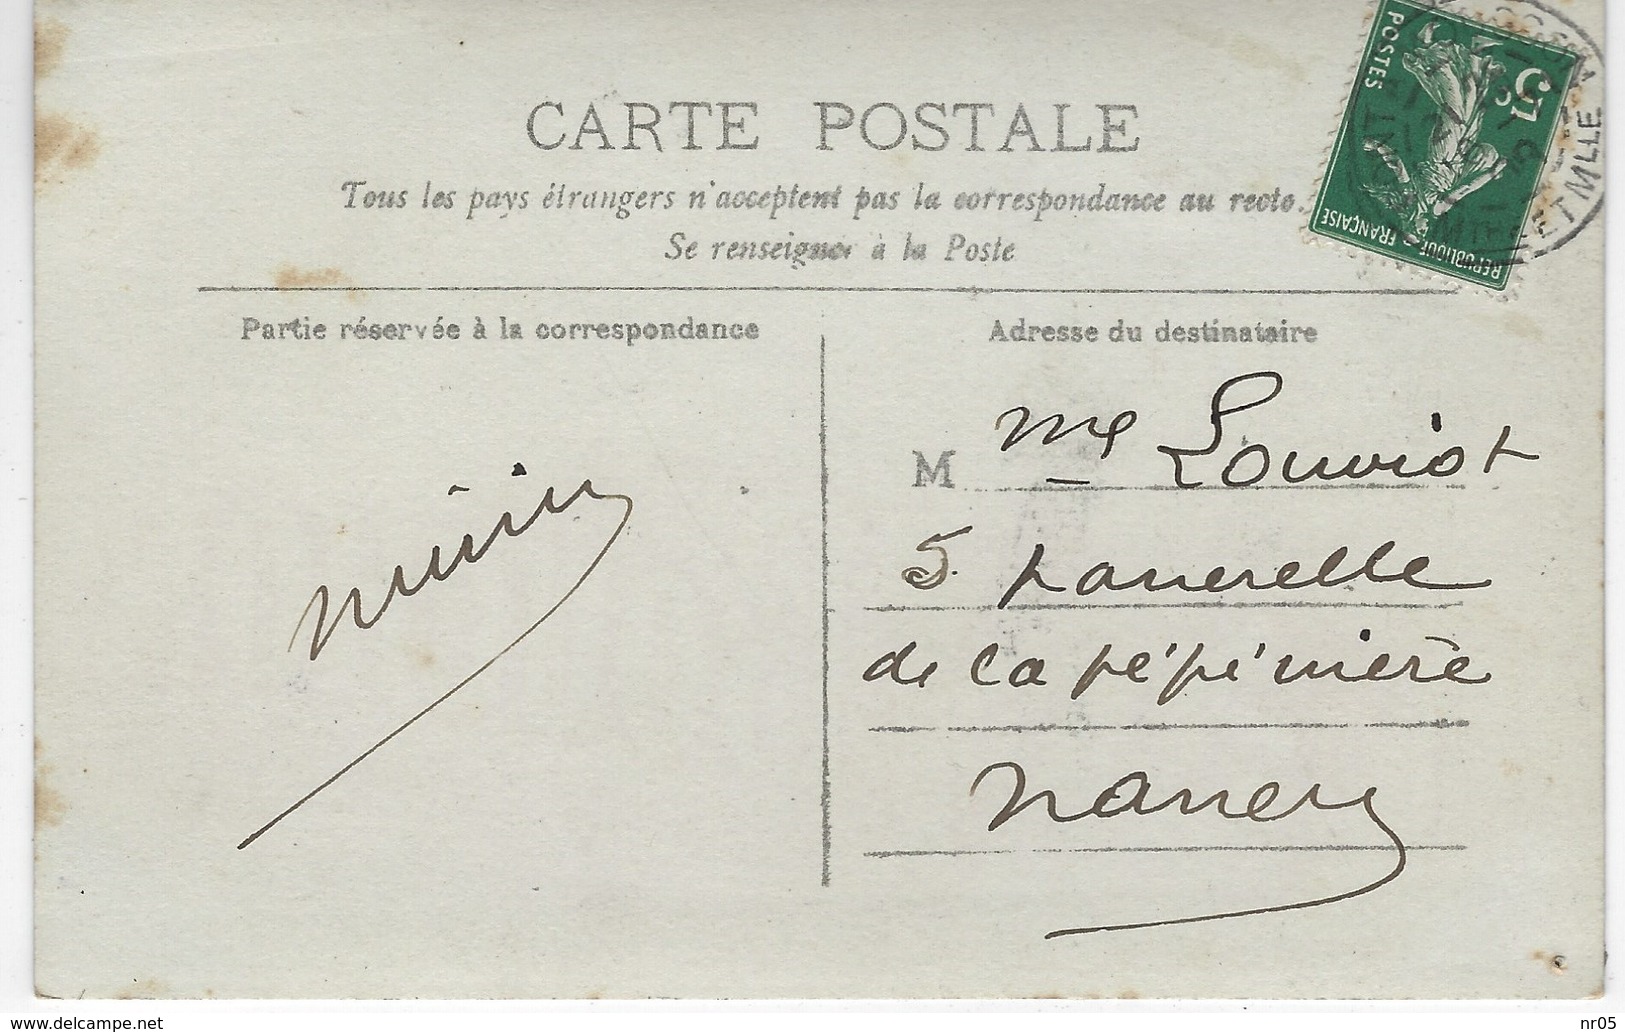 CARTE POSTALE
Tous les pays étrangers n'acceptent pas la correspondance au recto.
Se renseigner à la Poste
5c
POSTES
REPUBLIQUE FRANÇAISE
ET MLLE
Partie réservée à la correspondance
Adresse du destinataire
M me Louviot
5. passerelle
de la pépinière
Nancy
www.delcampe.net
nr05